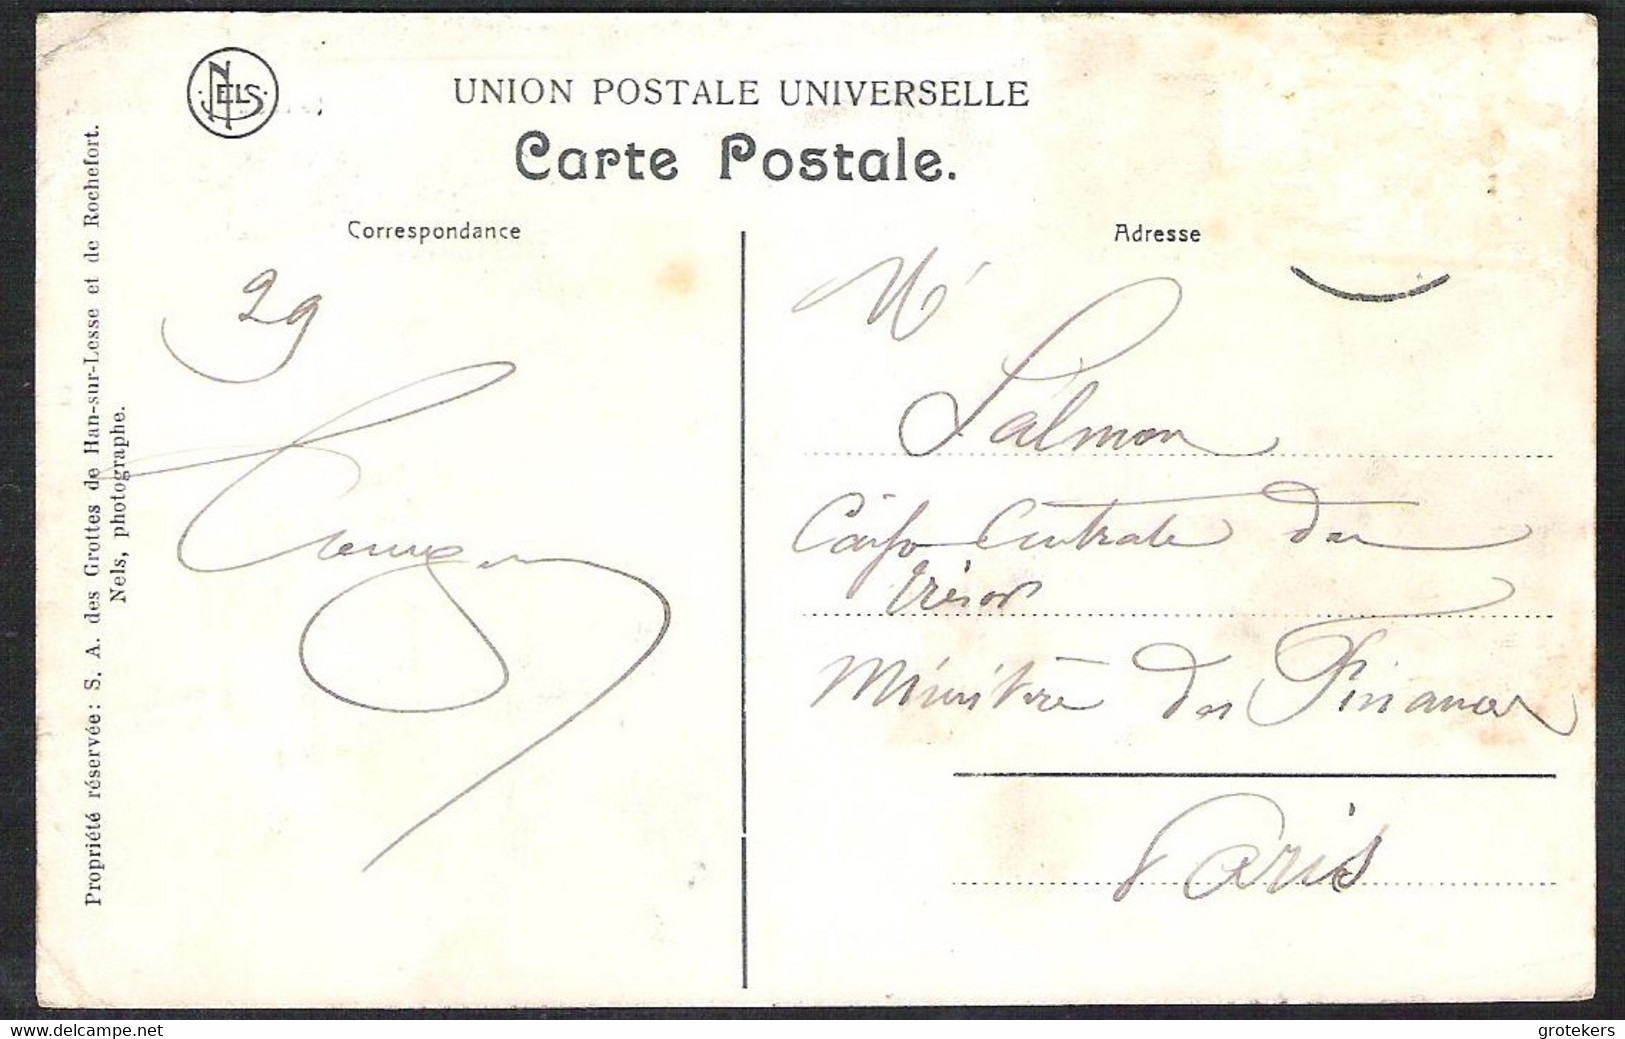 NELS
UNION POSTALE UNIVERSELLE
Carte Postale.
Correspondance
Adresse
Propriété réservée: S. A. des Grottes de Han-sur-Lesse et de Rochefort.
Nels, photographe.
29
Mr
Salmon
Caisse Centrale du
Trésor
Ministère des Finances
Paris
www.delcampe.net
grotekers